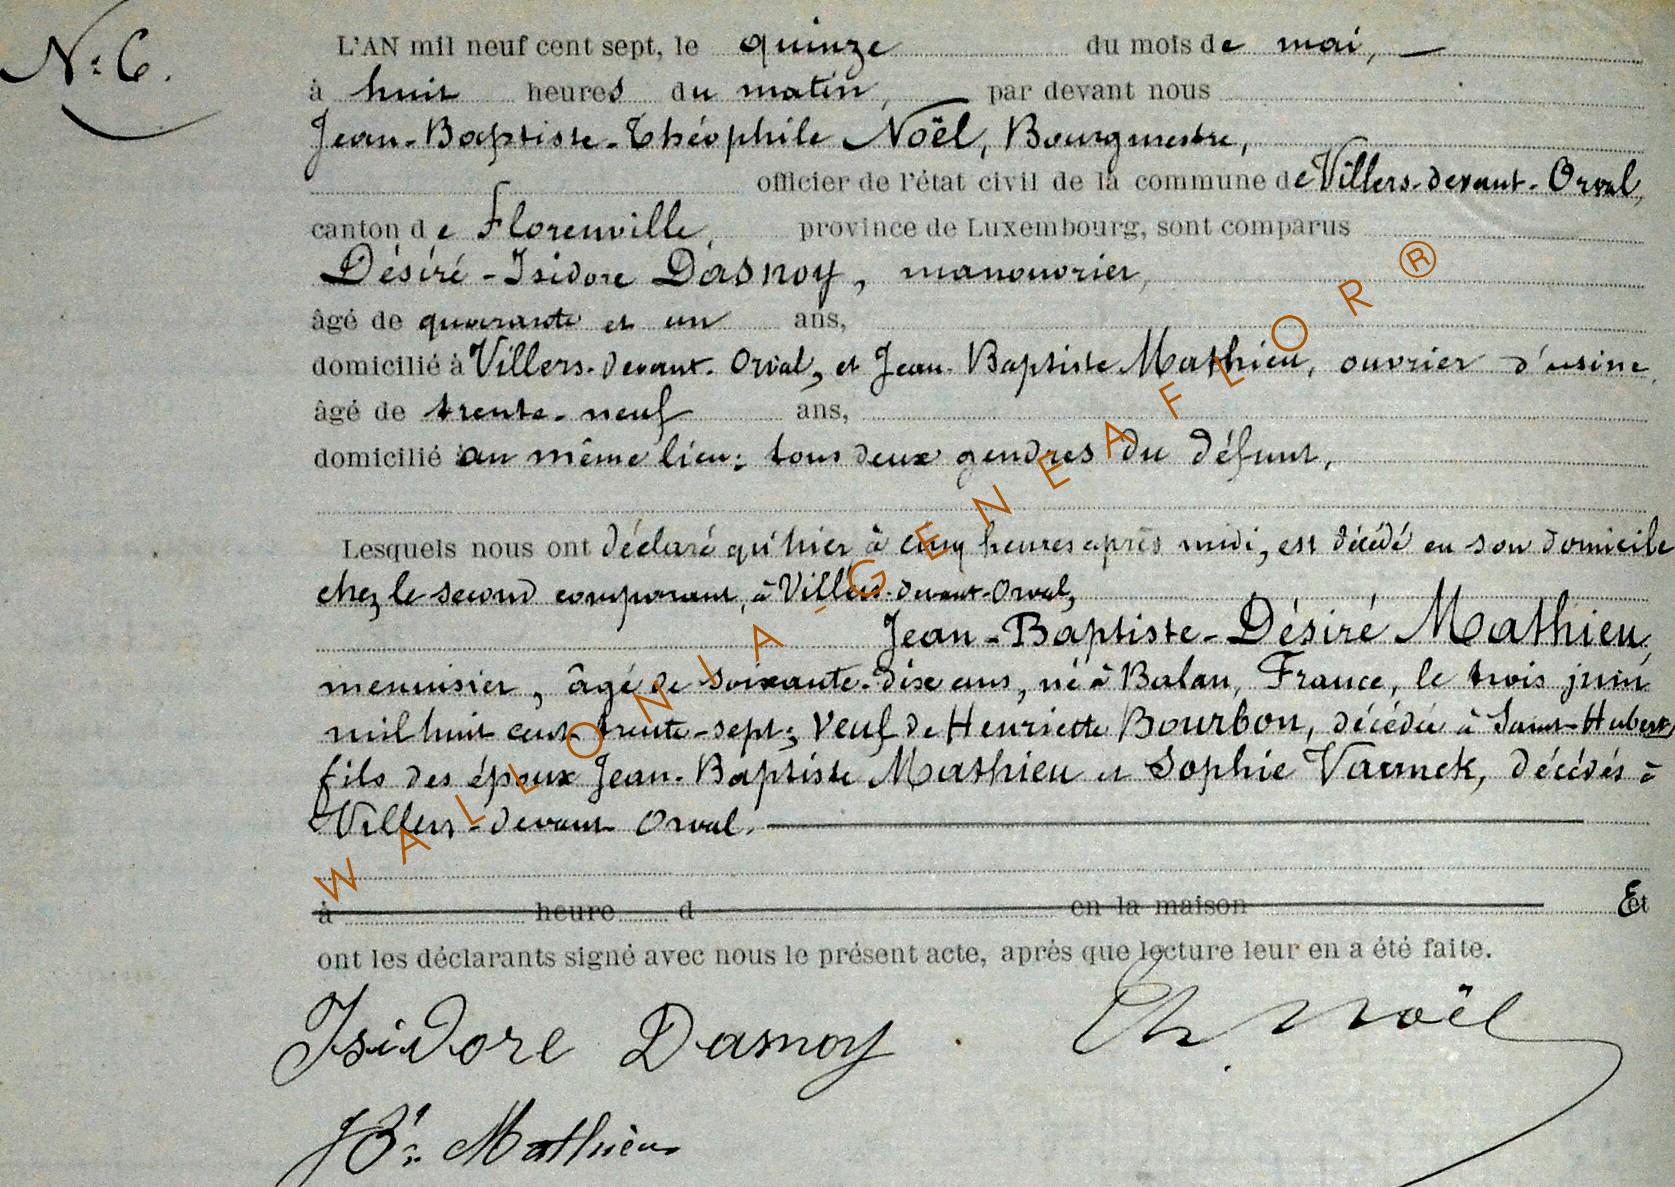 N° 6.
L'AN mil neuf cent sept, le quinze du mois de mai, —
à huit heures du matin, — par devant nous
Jean-Baptiste-Théophile Noël, Bourgmestre,
officier de l'état civil de la commune de Villers-devant-Orval,
canton de Florenville, province de Luxembourg, sont comparus
Désiré-Isidore Dasnoy, manouvrier,
âgé de quarante et un ans,
domicilié à Villers-devant-Orval, et Jean-Baptiste Mathieu, ouvrier d'usine,
âgé de trente-neuf ans,
domicilié au même lieu; tous deux gendres du défunt,
Lesquels nous ont déclaré qu'hier à cinq heures après midi, est décédé en son domicile
chez le second comparant, à Villers-devant-Orval,
Jean-Baptiste-Désiré Mathieu,
menuisier, âgé de soixante-dix ans, né à Balan, France, le trois juin
mil huit cent trente-sept; veuf de Henriette Bourbon, décédée à Saint-Hubert,
fils des époux Jean-Baptiste Mathieu et Sophie Varnck, décédés à
Villers-devant Orval. —
à heure d en la maison Et
ont les déclarants signé avec nous le présent acte, après que lecture leur en a été faite.
Isidore Dasnoy Th Noël
JBte Mathieu
WALLONIA-GENEAFLOR®